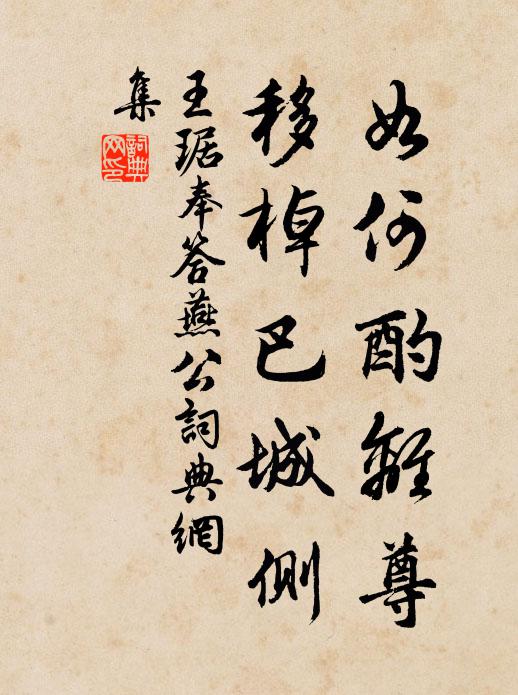 如何酌離尊
移棹巴城側
王琚奉答燕公詞典網
集
詞典
网印